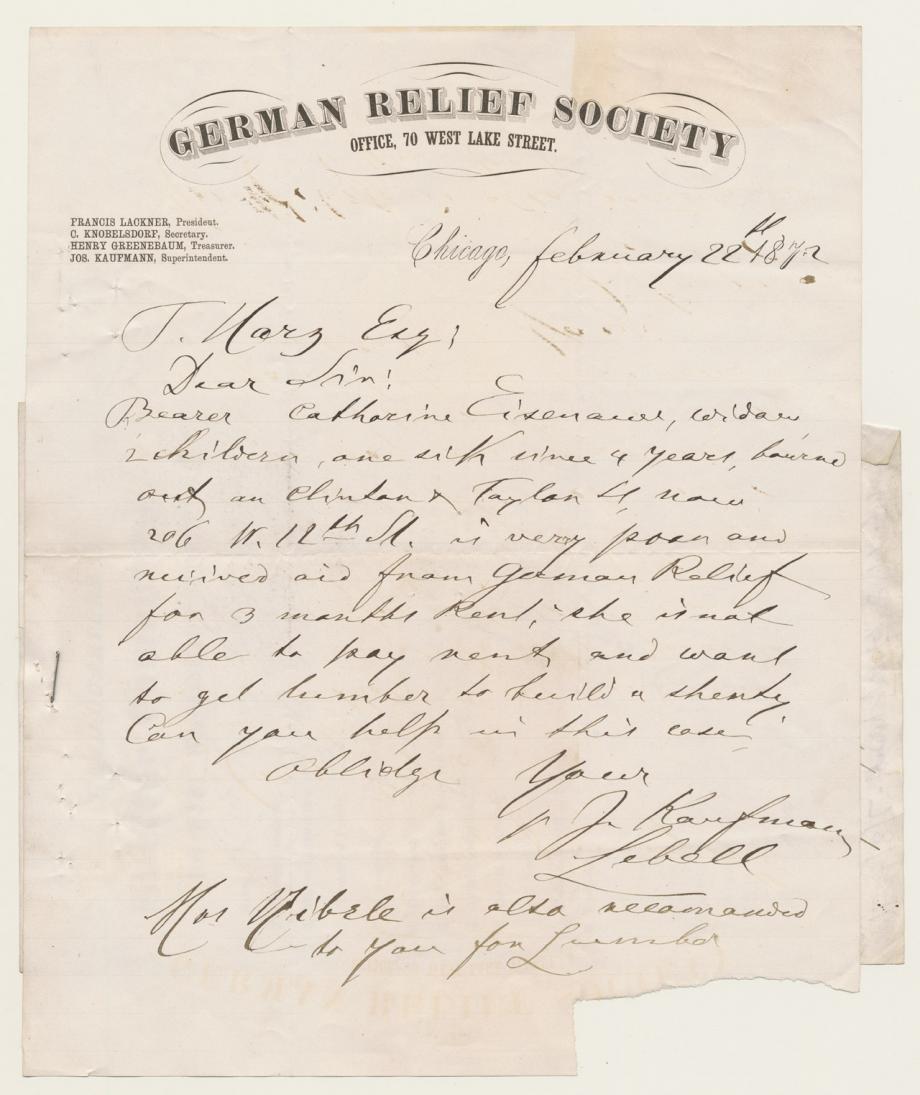 GERMAN RELIEF SOCIETY
OFFICE, 70 WEST LAKE STREET.
FRANCIS LACKNER, President.
C. KNOBELSDORF, Secretary.
HENRY GREENEBAUM, Treasurer.
JOS. KAUFMANN, Superintendent.
Chicago, february 22th 1872
T. Harz Esq;
Dear Sir!
Bearer Catharine Eisenauer, widow
2 children, one sick since 4 years, bourned
out on Clinton & Taylor St, now
206 W. 12th St. is verry poor and
reiived aid from German Relief
for 3 months Rent; she is not
able to pay rent and want
to get lumber to build a shenty
Can you help in this case
Oblidge Your
p J. Kaufmann
Lebell
Mrs is also recomanded
to you for Lumber